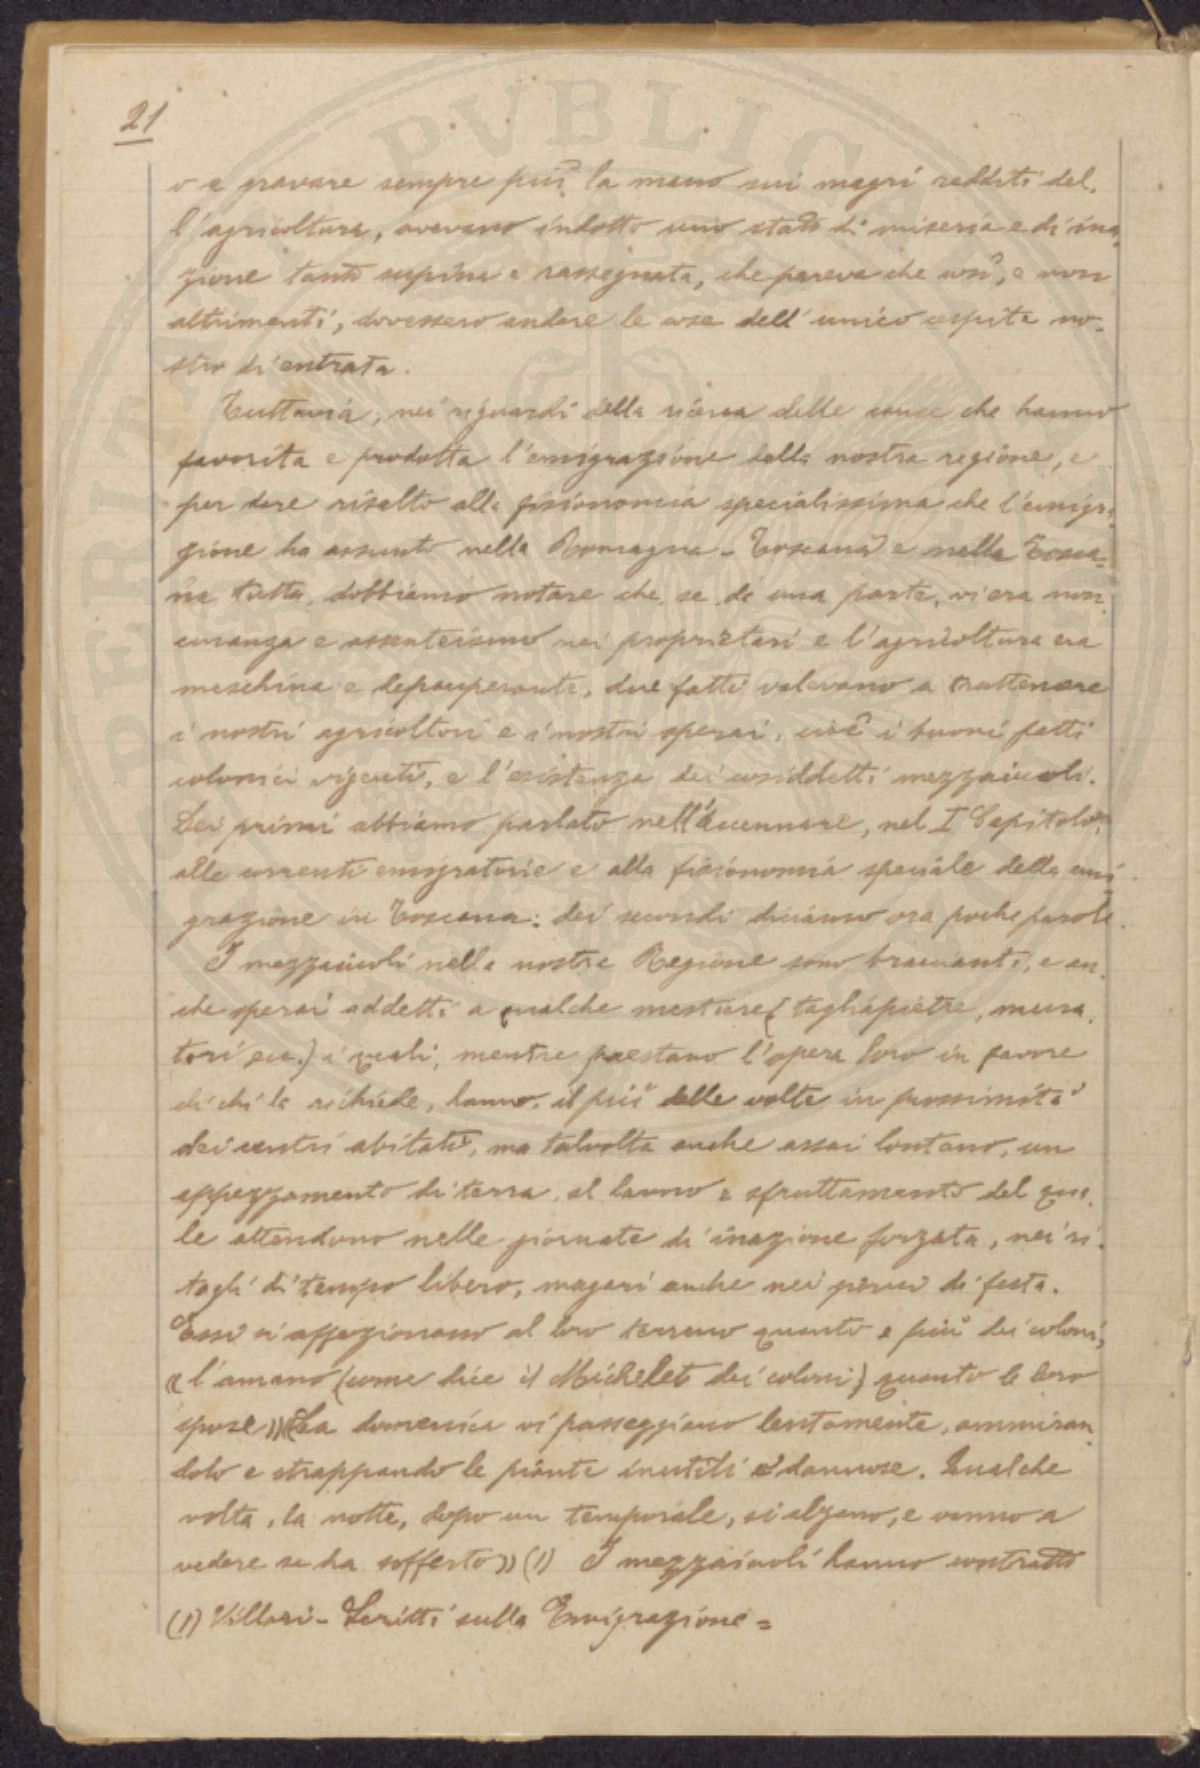 21
o a gravare sempre più la mano sui magri redditi del-
l'agricoltura, avevano indotto uno stato di miseria e di ina-
zione tanto supina e rassegnata, che pareva che così, e non
altrimenti, dovessero andare le cose dell'unico cespite no-
stro di entrata.
Tuttavia, nei riguardi della ricerca delle cause che hanno
favorita e prodotta l'emigrazione della nostra regione, e
per dare risalto alla fisionomia specialissima che l'emigra-
zione ha assunto nella Romagna-Toscana e nella Tosca-
na tutta, dobbiamo notare che, se, da una parte, vi era non-
curanza e assenteismo nei proprietari e l'agricoltura era
meschina e depauperante, due fatti valevano a trattenere
i nostri agricoltori e i nostri operai, cioè i buoni patti
colonici vigenti, e l'esistenza dei cosiddetti mezzaiuoli.
Dei primi abbiamo parlato nell'accennare, nel I Capitolo,
alle correnti emigratorie e alla fisionomia speciale della emi-
grazione in Toscana: dei secondi diciamo ora poche parole.
I mezzaiuoli nella nostra Regione sono braccianti, e an-
che operai addetti a qualche mestiere (tagliapietre, mura-
tori ecc.) i quali, mentre prestano l'opera loro in favore
di chi la richiede, hanno, il più delle volte in prossimità
dei centri abitati, ma talvolta anche assai lontano, un
appezzamento di terra, al lavoro e sfruttamento del qua-
le attendono nelle giornate di inazione forzata, nei ri-
tagli di tempo libero, magari anche nei giorni di festa.
Essi si affezionano al loro terreno quanto e più dei coloni,
«l'amano (come dice il Michelet dei coloni) quanto le loro
spose» «La domenica vi passeggiano lentamente, ammiran-
dolo e strappando le piante inutili e dannose. Qualche
volta, la notte, dopo un temporale, si alzano, e vanno a
vedere se ha sofferto» (1) I mezzaiuoli hanno contratto
(1) Villari - Scritti sulla Emigrazione =
PVBLICA